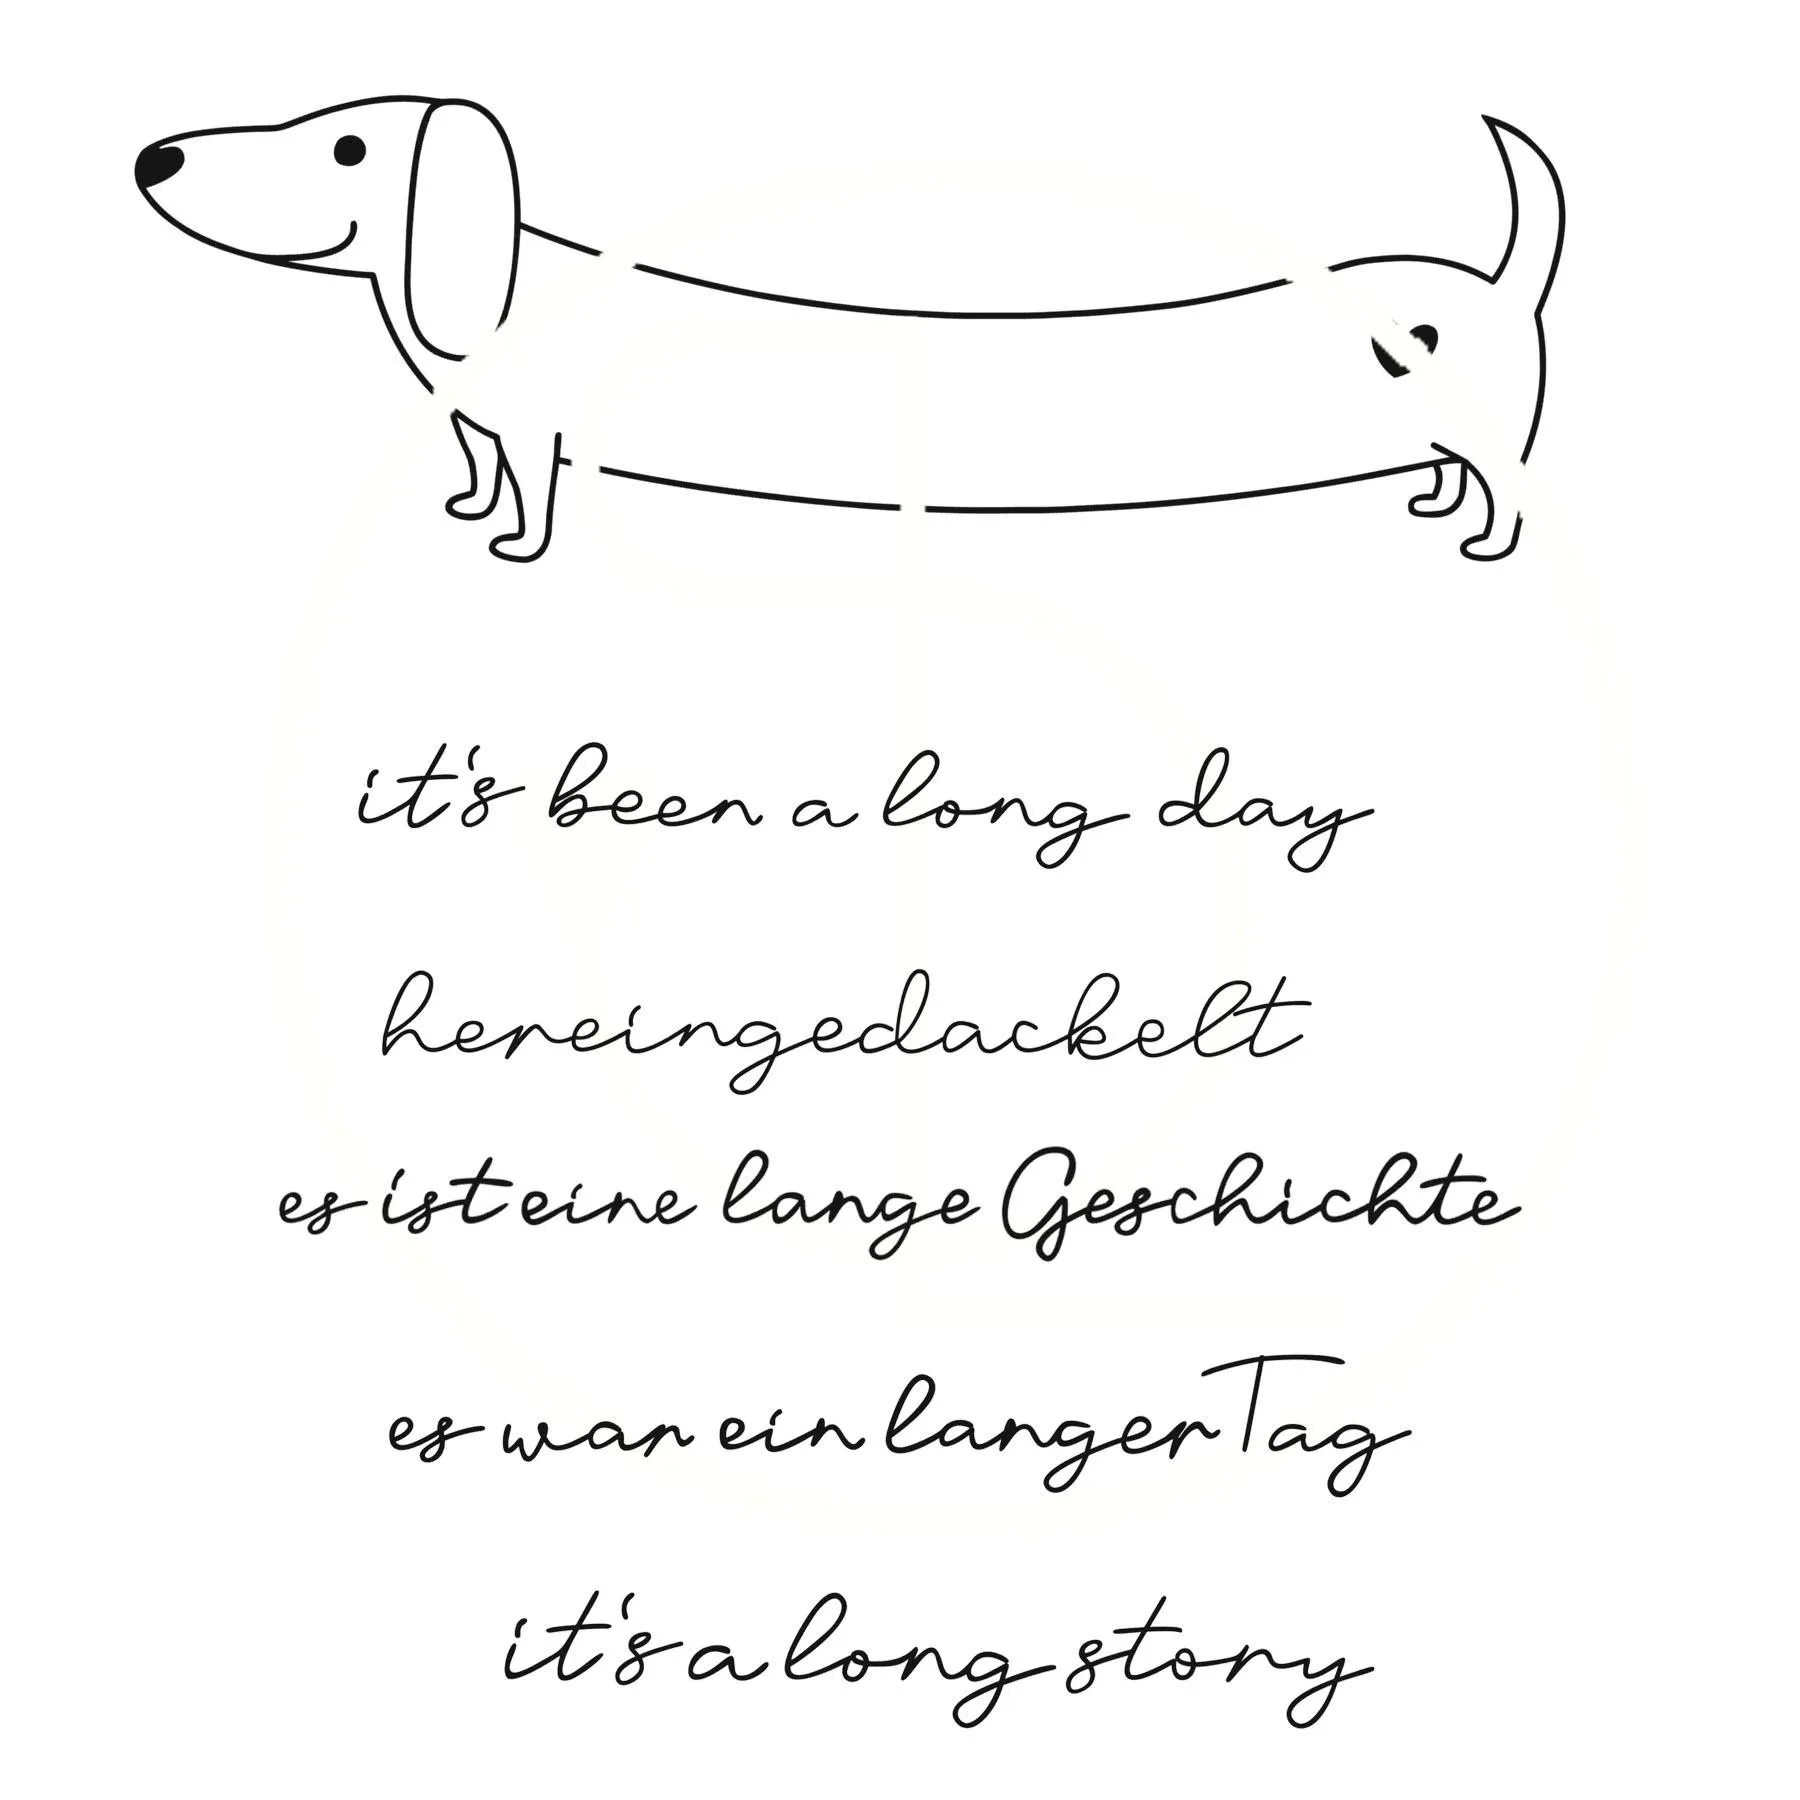 it's been a long day
hereingedackelt
es ist eine lange Geschichte
es war ein langer Tag
it's a long story